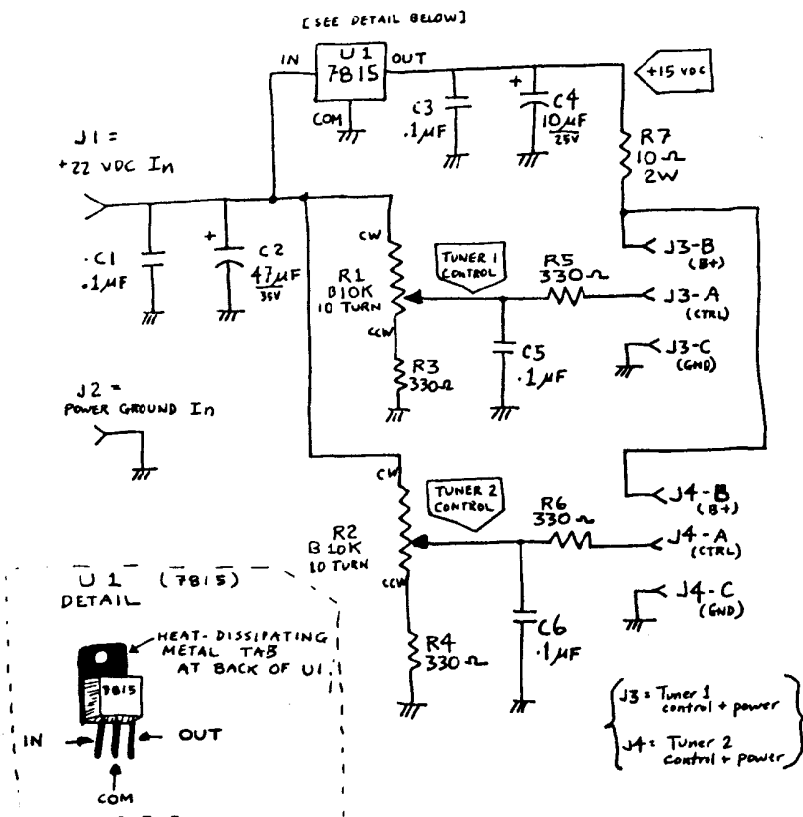 [SEE DETAIL BELOW]
IN
U1
7815
OUT
COM
C3
.1µF
+
C4
10µF
25V
+15 VDC
R7
10Ω
2W
J1 =
+22 VDC In
C1
.1µF
+
C2
47µF
35V
CW
R1
B10K
10 TURN
CCW
R3
330Ω
TUNER 1
CONTROL
C5
.1µF
R5
330Ω
J3-B
(B+)
J3-A
(CTRL)
J3-C
(GND)
J2 =
POWER GROUND In
CW
R2
B 10K
10 TURN
CCW
R4
330Ω
TUNER 2
CONTROL
C6
.1µF
R6
330Ω
J4-B
(B+)
J4-A
(CTRL)
J4-C
(GND)
U1 (7815)
DETAIL
HEAT-DISSIPATING
METAL TAB
AT BACK OF U1.
7815
IN
OUT
COM
J3 = Tuner 1
control + power
J4 = Tuner 2
control + power